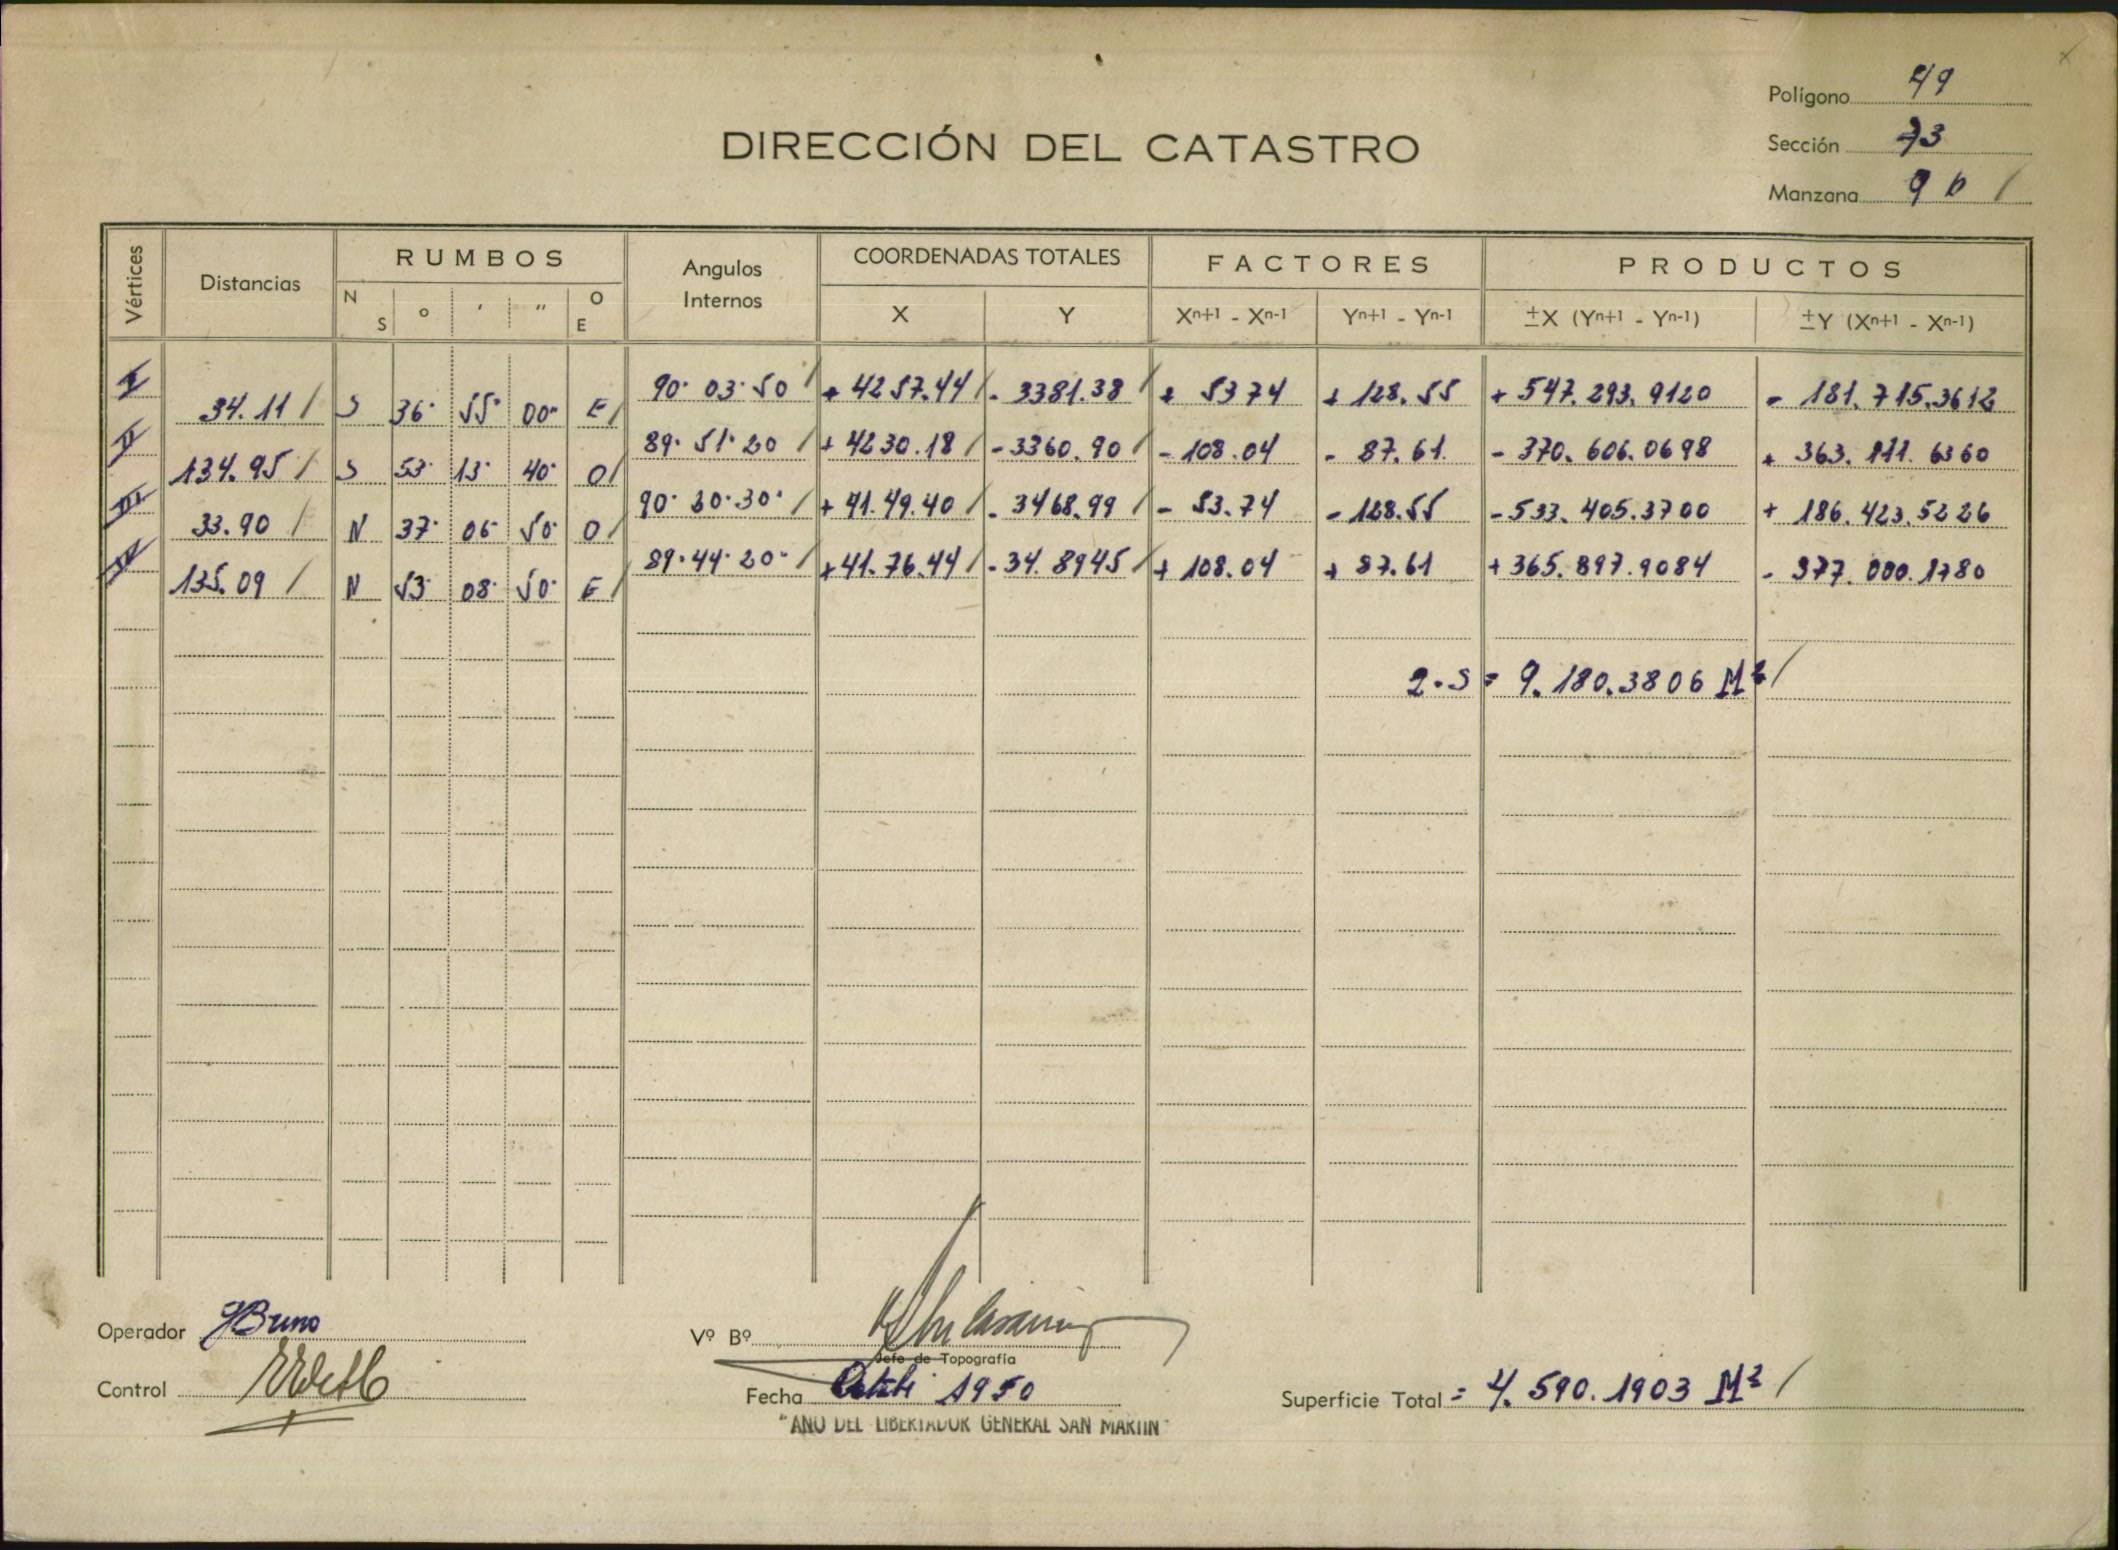 Polígono 49
DIRECCIÓN DEL CATASTRO
Sección 73
Manzana 9 b /
Vértices Distancias RUMBOS Angulos Internos COORDENADAS TOTALES FACTORES PRODUCTOS
N S ° ' " O E X Y Xn+1 - Xn-1 Yn+1 - Yn-1 ±X (Yn+1 - Yn-1) ±Y (Xn+1 - Xn-1)
I 90· 03· 50 / + 4257.44 / - 3381.38 / + 53 74 + 128.55 + 547.293.9120 - 181.715.3612
34.11 / S 36· 55· 00· E /
II 89· 51· 20 / + 4230.18 / - 3360.90 / - 108.04 - 87.61. - 370.606.0698 + 363.111.6360
134.95 / S 53· 13· 40· O /
III 90· 20· 30· / + 41.49.40 / - 3468.99 / - 53.74 - 128.55 - 533.405.3700 + 186.423.5226
33.90 / N 37· 06· 50· O /
IV 89·44·20· / + 41.76.44 / - 34.8945 / + 108.04 + 87.61 + 365.897.9084 - 377.000.1780
135.09 / N 53· 08· 50· E /
2·S = 9.180.3806 M² /
Operador JBruno
Vº Bº
Jefe de Topografía
Control
Fecha 1950
Superficie Total = 4.590.1903 M² /
"AÑO DEL LIBERTADOR GENERAL SAN MARTIN"